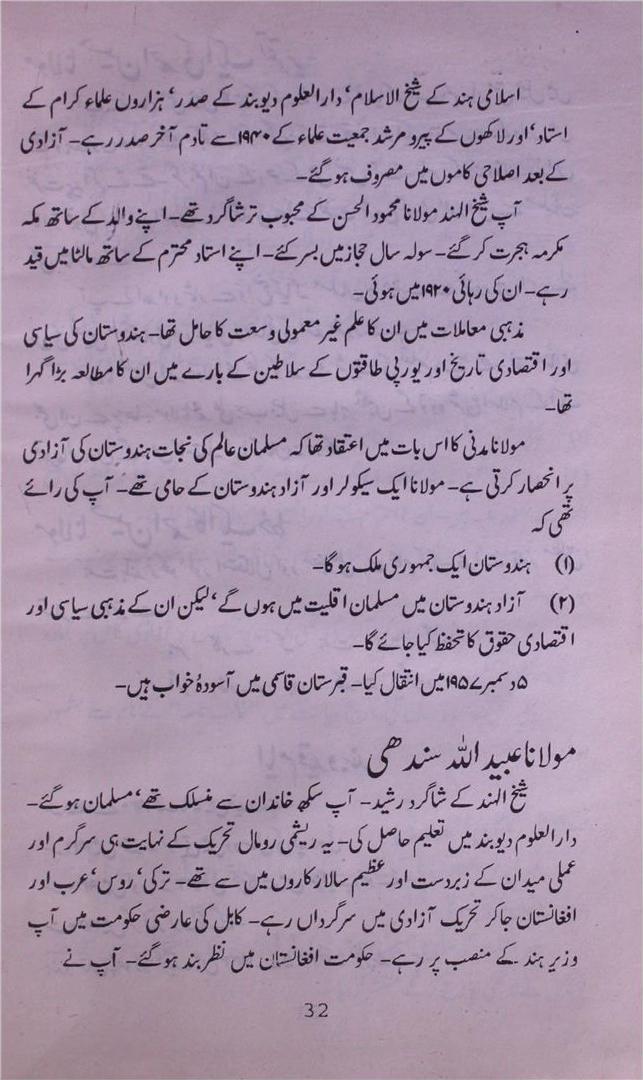 اسلامی ہند کے شیخ الاسلام‘ دارالعلوم دیوبند کے صدر‘ ہزاروں علماء کرام کے
استاد‘ اور لاکھوں کے پیرو مرشد جمعیت علماء کے ۱۹۴۰ سے تادم آخر صدر رہے۔ آزادی
کے بعد اصلاحی کاموں میں مصروف ہوگئے۔
آپ شیخ الہند مولانا محمود الحسن کے محبوب تر شاگرد تھے۔ اپنے والد کے ساتھ مکہ
مکرمہ ہجرت کر گئے۔ سولہ سال حجاز میں بسر کئے۔ اپنے استاد محترم کے ساتھ مالٹا میں قید
رہے۔ ان کی رہائی ۱۹۲۰ میں ہوئی۔
مذہبی معاملات میں ان کا علم غیر معمولی وسعت کا حامل تھا۔ ہندوستان کی سیاسی
اور اقتصادی تاریخ اور یورپی طاقتوں کے سلاطین کے بارے میں ان کا مطالعہ بڑا گہرا
تھا۔
مولانا مدنی کا اس بات میں اعتقاد تھا کہ مسلمان عالم کی نجات ہندوستان کی آزادی
پر انحصار کرتی ہے۔ مولانا ایک سیکولر اور آزاد ہندوستان کے حامی تھے۔ آپ کی رائے
تھی کہ
(۱) ہندوستان ایک جمہوری ملک ہوگا۔
(۲) آزاد ہندوستان میں مسلمان اقلیت میں ہوں گے‘ لیکن ان کے مذہبی سیاسی اور
اقتصادی حقوق کا تحفظ کیا جائے گا۔
۵ دسمبر ۱۹۵۷ میں انتقال کیا۔ قبرستان قاسمی میں آسودۂ خواب ہیں۔
مولانا عبید اللہ سندھی
شیخ الہند کے شاگرد رشید۔ آپ سکھ خاندان سے منسلک تھے‘ مسلمان ہوگئے۔
دارالعلوم دیوبند میں تعلیم حاصل کی۔ یہ ریشمی رومال تحریک کے نہایت ہی سرگرم اور
عملی میدان کے زبردست اور عظیم سالار کاروں میں سے تھے۔ ترکی‘ روس‘ عرب اور
افغانستان جاکر تحریک آزادی میں سرگرداں رہے۔ کابل کی عارضی حکومت میں آپ
وزیر ہند کے منصب پر رہے۔ حکومت افغانستان میں نظر بند ہوگئے۔ آپ نے
32